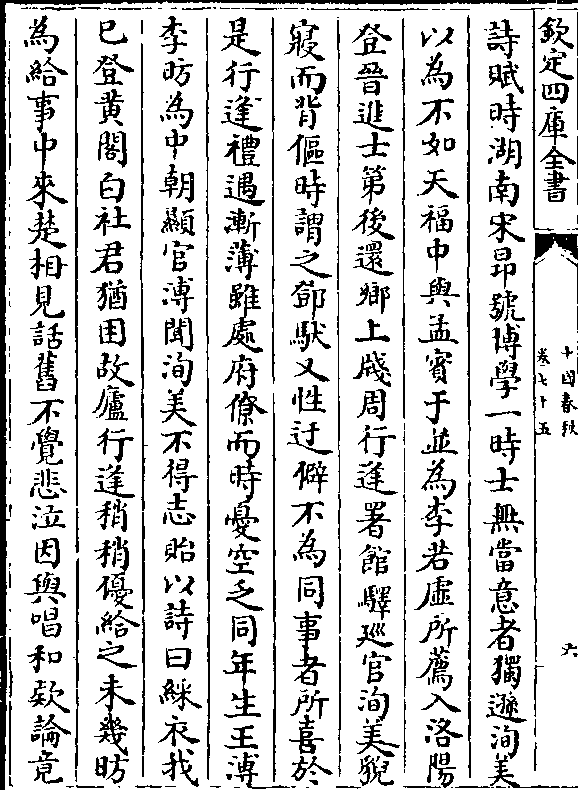 欽定四庫全書
十國春秋
卷七十五
六
詩賦時湖南宋昂號博學一時士無當意者獨遜洵美
以為不如天福中與孟賓于並為李若虛所薦入洛陽
登晉進士第後還鄉上牋周行逢署館驛廵官洵美貌
寢而背傴時謂之鄧馱又性迂僻不為同事者所喜於
是行逢禮遇漸薄雖處府僚而時憂空乏同年生王溥
李昉為中朝顯官溥聞洵美不得志貽以詩曰綵衣我
已登黄閣白社君猶困故廬行逢稍稍優給之未幾昉
為給事中來楚相見話舊不覺悲泣因與唱和欵論竟